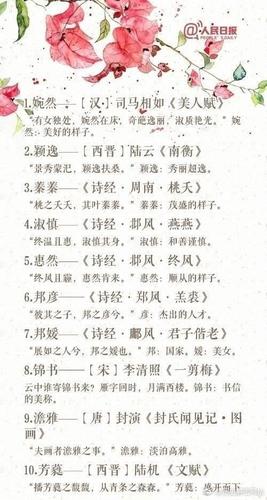 @人民日报
PEOPLE'S DAILY
1.婉然——【汉】司马相如《美人赋》
“有女独处，婉然在床，奇葩逸丽，淑质艳光。”婉
然：美好的样子。
2.颖逸——【西晋】陆云《南衡》
“景秀蒙汜，颖逸扶桑。”颖逸：秀丽超逸。
3.蓁蓁——《诗经·周南·桃夭》
“桃之夭夭，其叶蓁蓁。”蓁蓁：茂盛的样子。
4.淑慎——《诗经·邶风·燕燕》
“终温且惠，淑慎其身。”淑慎：和善谨慎。
5.惠然——《诗经·邶风·终风》
“终风且霾，惠然肯来。”惠然：顺从的样子。
6.邦彦——《诗经·郑风·羔裘》
“彼其之子，邦之彦兮。”彦：杰出的人才。
7.邦媛——《诗经·鄘风·君子偕老》
“展如之人兮，邦之媛也。”邦：国家，媛：美女。
8.锦书——【宋】李清照《一剪梅》
云中谁寄锦书来？雁字回时，月满西楼。锦书：书信
的美称。
9.澹雅——【唐】封演《封氏闻见记·图
画》
“夫画者澹雅之事。”澹雅：淡泊高雅。
10.芳蕤——【西晋】陆机《文赋》
“播芳蕤之馥馥，从青条之森森。”芳蕤：盛开而下